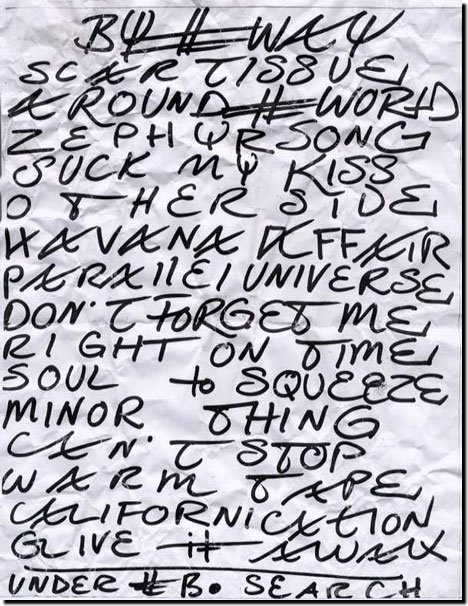 BY THE WAY
SCAR TISSUE
AROUND THE WORLD
ZEPHYR SONG
SUCK MY KISS
OTHERSIDE
HAVANA AFFAIR
PARAllEl UNIVERSE
DON'T FORGET ME
RIGHT ON TIME
SOUL to SQUEEZE
MINOR THING
CAN'T STOP
WARM TAPE
CALIFORNICATION
GIVE it AWAY
UNDER THE B. SEARCH